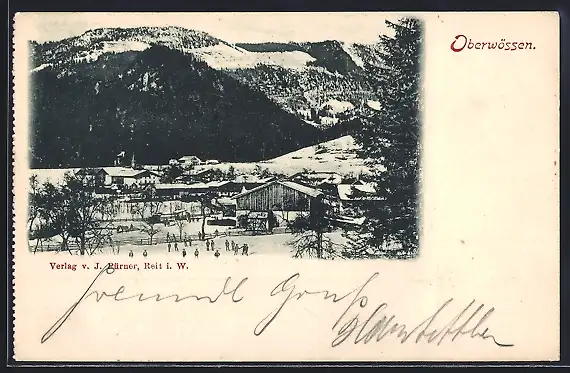 Oberwössen.
Verlag v. J. Fürner, Reit i. W.
Freundl. Gruß